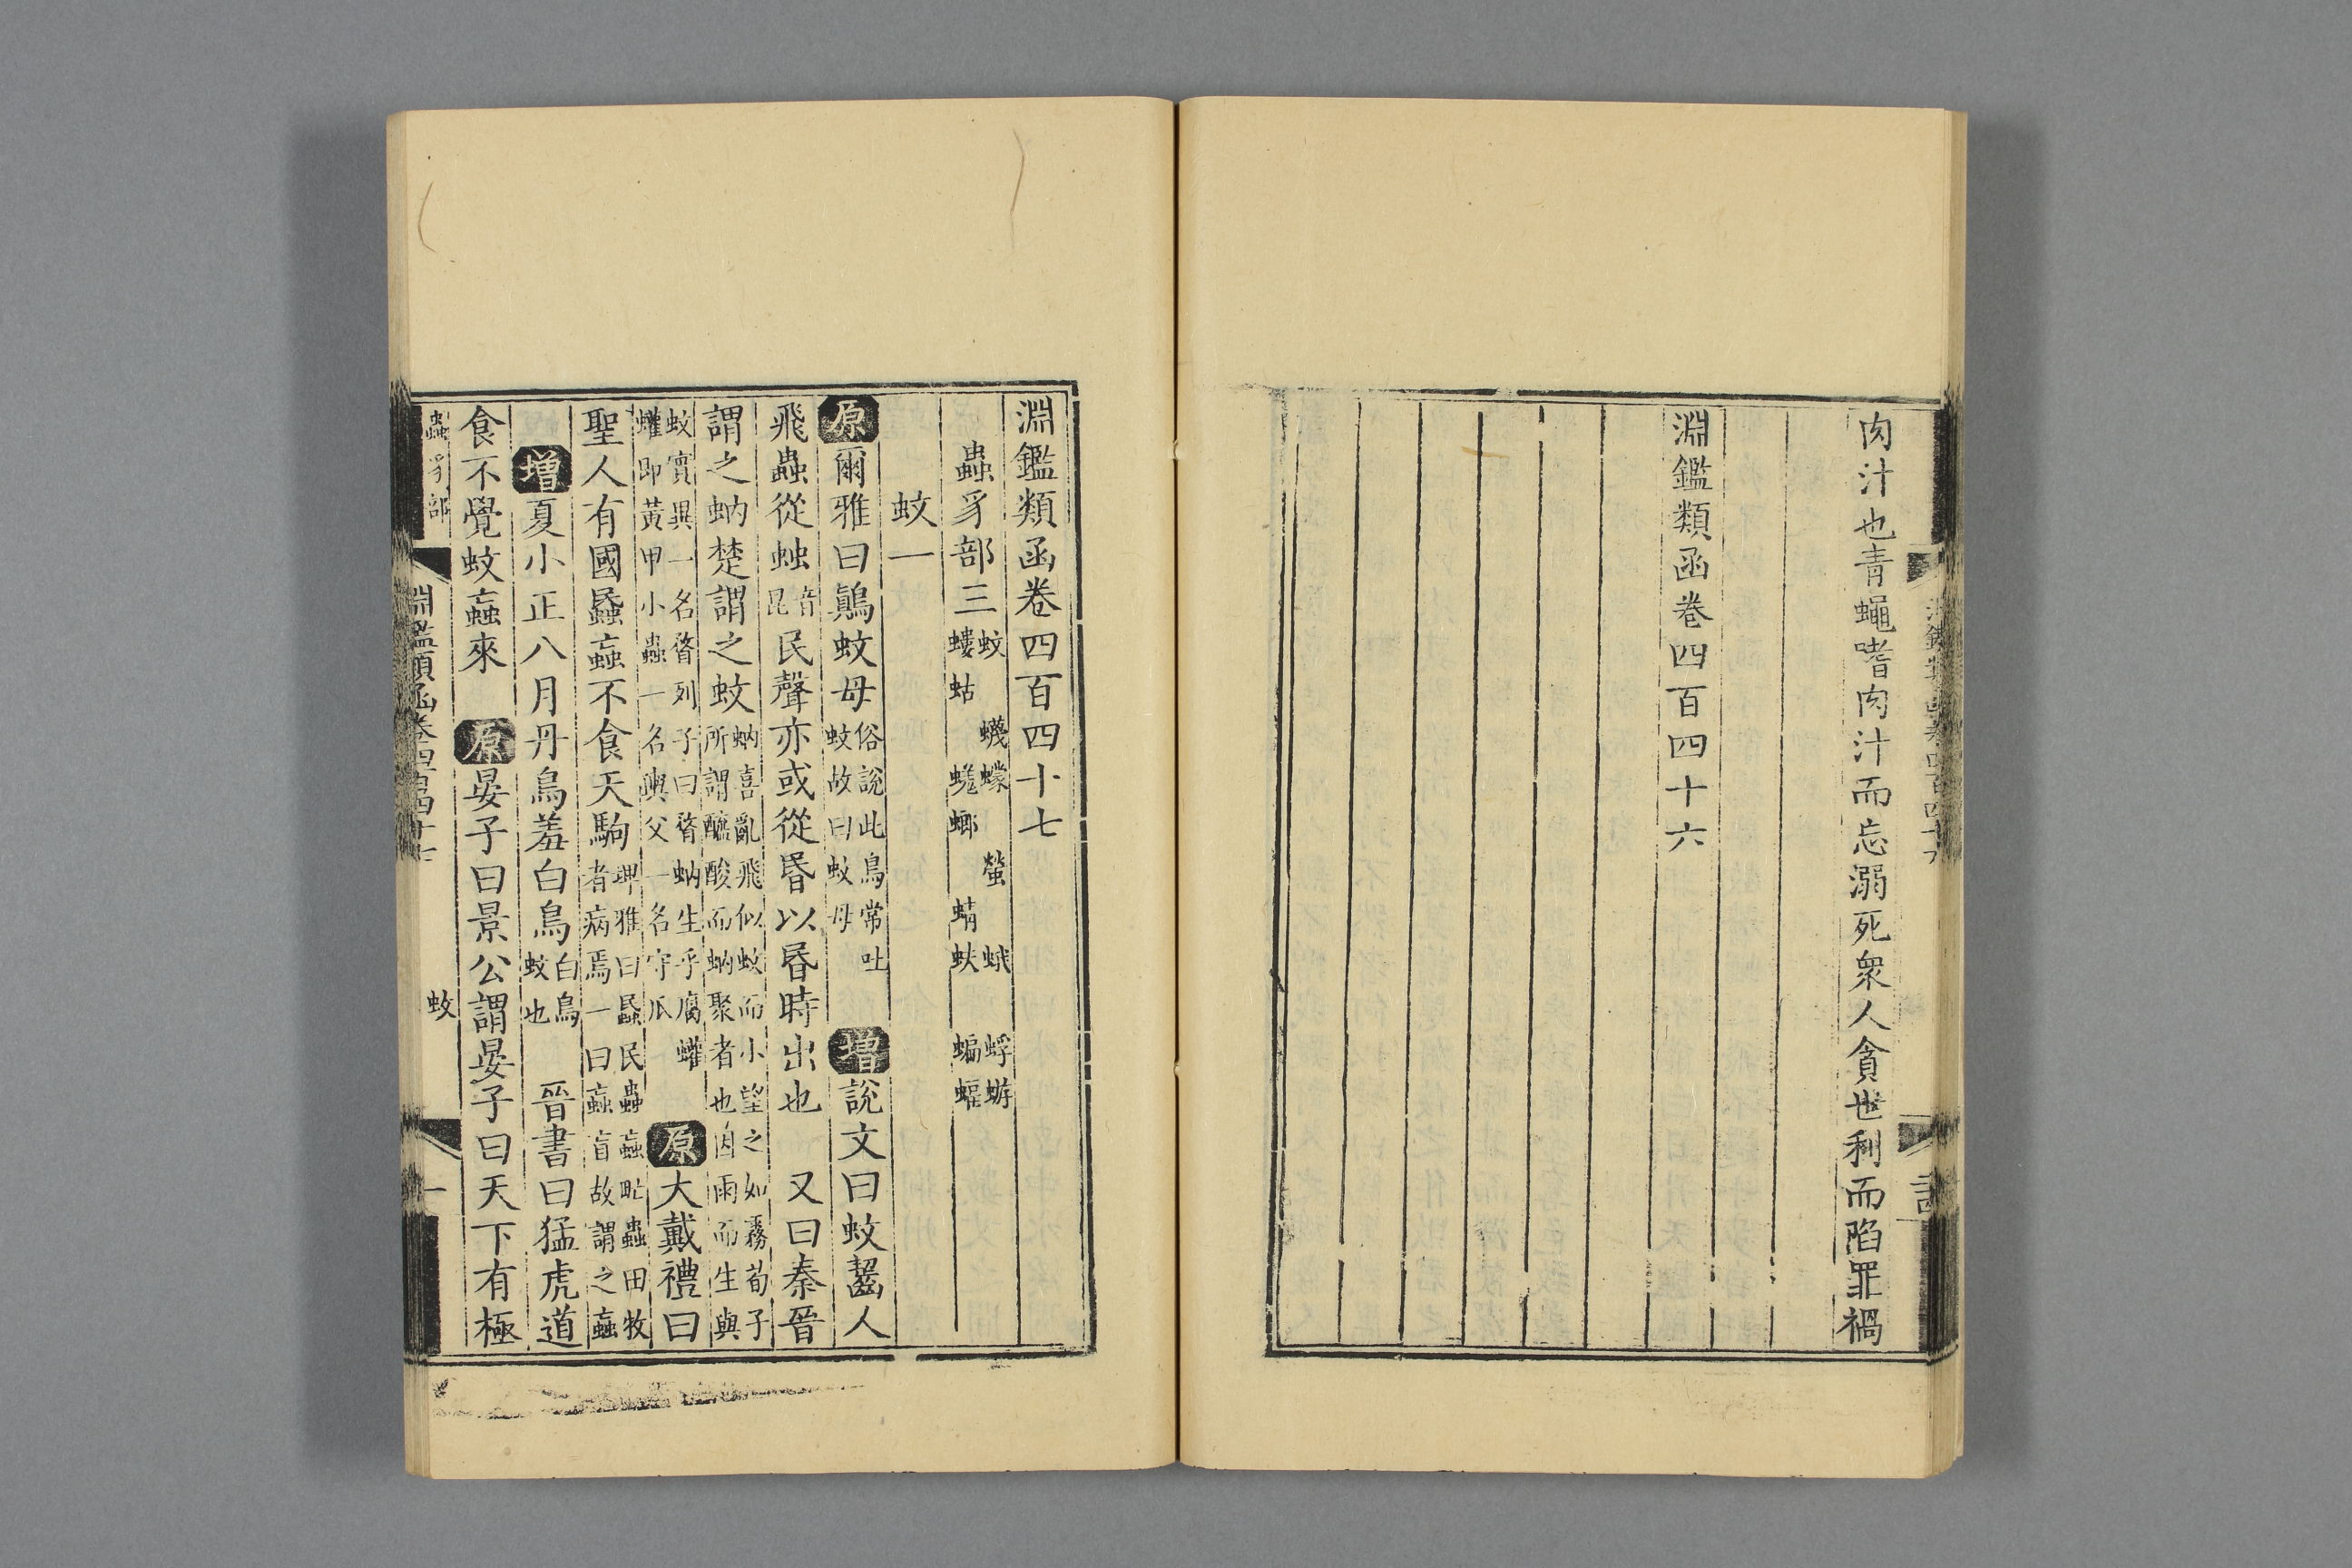 肉汁也青蠅嗜肉汁而忘溺死衆人貪世利而陷罪禍
淵鑑類函卷四百四十六
淵鑑類函卷四百四十七
蟲豸部三 蚊 蠛蠓 螢 蛾 蜉蝣 螻蛄 蜣螂 蜻蚨 蝙蝠
蚊一
原爾雅曰鷏蚊母俗說此鳥常吐蚊故曰蚊母 增說文曰蚊齧人
飛蟲從䖵音昆民聲亦或從昬以昬時出也 又曰秦晉
謂之蚋楚謂之蚊蚋喜亂飛似蚊而小望之如霧荀子所謂醯酸而蚋聚者也因雨而生與
蚊實異一名瞀列子曰瞀蚋生乎腐蠸蠸即黃甲小蟲一名輿父一名守瓜 原大戴禮曰
聖人有國蟁蝱不食天駒埤雅曰蟁民蟲蝱甿蟲田牧者病焉一曰蝱盲故謂之蝱
增夏小正八月丹鳥羞白鳥白鳥蚊也 晉書曰猛虎道
食不覺蚊蝱來 原晏子曰景公謂晏子曰天下有極
蟲豸部 淵鑑類函卷四百四十七 蚊 一